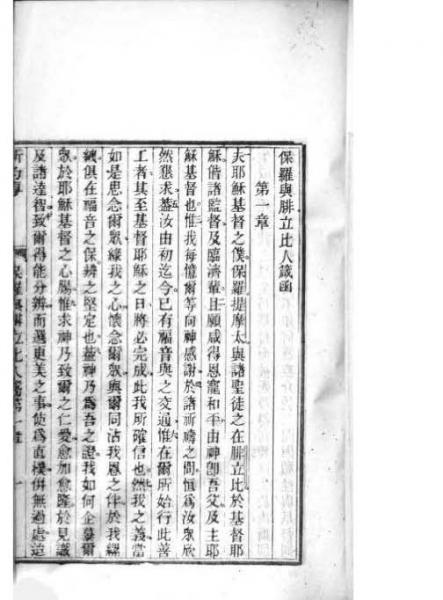 保羅與腓立比人箴函
第一章
夫耶穌基督之僕保羅提摩太與諸聖徒之在腓立比於基督耶
穌偕諸監督及臨濟輩且願咸得恩寵和平由神卽吾父及主耶
穌基督也惟我每憶爾等向神感謝於諸祈禱之間恒為汝衆欣
然懇求葢汝由初迄今已有福音與之交通惟在爾所始行此善
工者其至基督耶穌之日將必完成此我所確信也然我之葢當
如是思念爾衆緣我之心懷念爾衆與爾同沾我恩之伴於我縲
絏俱在福音之保辨之堅定也葢神乃為吾之證我如何企慕爾
衆於耶穌基督之心腸惟求神乃致爾之仁愛愈加愈隆於見識
及諸達智致爾得能分辨而選更美之事使為直樸併無過處迨
保羅與腓立比人箴第一章 一